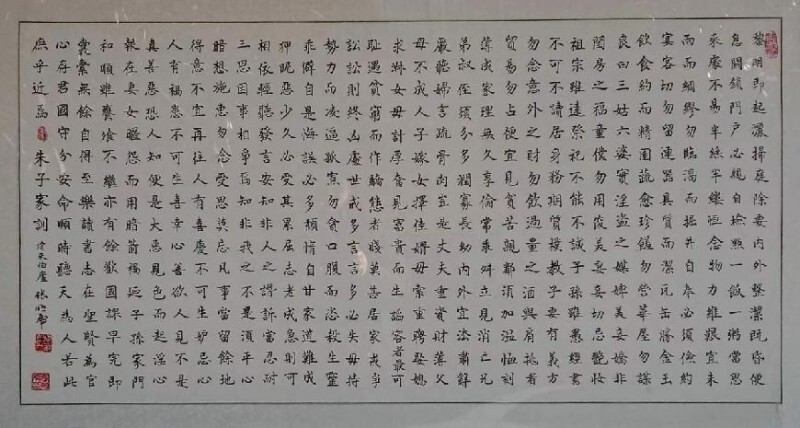 黎明即起灑掃庭除要內外整潔既昏便
息關鎖門戶必親自檢點一飯一粥當思
來處不易半絲半縷恆念物力維艱宜未
雨而綢繆勿臨渴而掘井自奉必須儉約
宴客切勿留連器具質而潔瓦缶勝金玉
飲食約而精園蔬愈珍饈勿營華屋勿謀
良田三姑六婆實淫盜之媒婢美妾嬌非
閨房之福童僕勿用俊美妻妾切忌艷妝
祖宗雖遠祭祀不能不誠子孫雖愚經書
不可不讀居身務期質樸教子要有義方
勿念意外之財勿飲過量之酒與肩挑者
貿易勿占便宜見貧苦親鄰須加溫恤刻
薄成家理無久享倫常乖舛立見消亡兄
弟叔侄須分多潤寡長幼內外宜法肅辭
嚴聽婦言疏骨肉豈是丈夫重資財薄父
母不成人子嫁女擇佳婿毋索重聘娶媳
求淑女毋計厚奩見富貴而生諂容者最可
恥遇貧窮而作驕態者賤莫甚居家戒爭
訟訟則終凶處世戒多言言多必失毋恃
勢力而凌逼孤寡勿貪口腹而恣殺生靈
乖僻自是悔誤必多頹惰自甘家道難成
狎昵惡少久必受其累屈志老成急則可
相依輕聽發言安知非人之譖訴當忍耐
三思因事相爭焉知非我之不是須平心
暗想施惠勿念受恩莫忘凡事當留餘地
得意不宜再往人有喜慶不可生妒忌心
人有禍患不可生喜幸心善欲人見不是
真善惡恐人知便是大惡見色而起淫心
報在妻女匿怨而用暗箭禍延子孫家門
和順雖饔飧不繼亦有餘歡國課早完即
囊橐無餘自得至樂讀書志在聖賢為官
心存君國守分安命順時聽天為人若此
庶乎近焉 朱子家訓